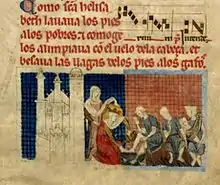 Como sen helisa
beth lauaua los pies
alos pobres ⁊ comoge
los alinpiaua cõ el uelo ⁊ela cabeça ⁊
besaua las llagas ⁊elos pies alos gafos.